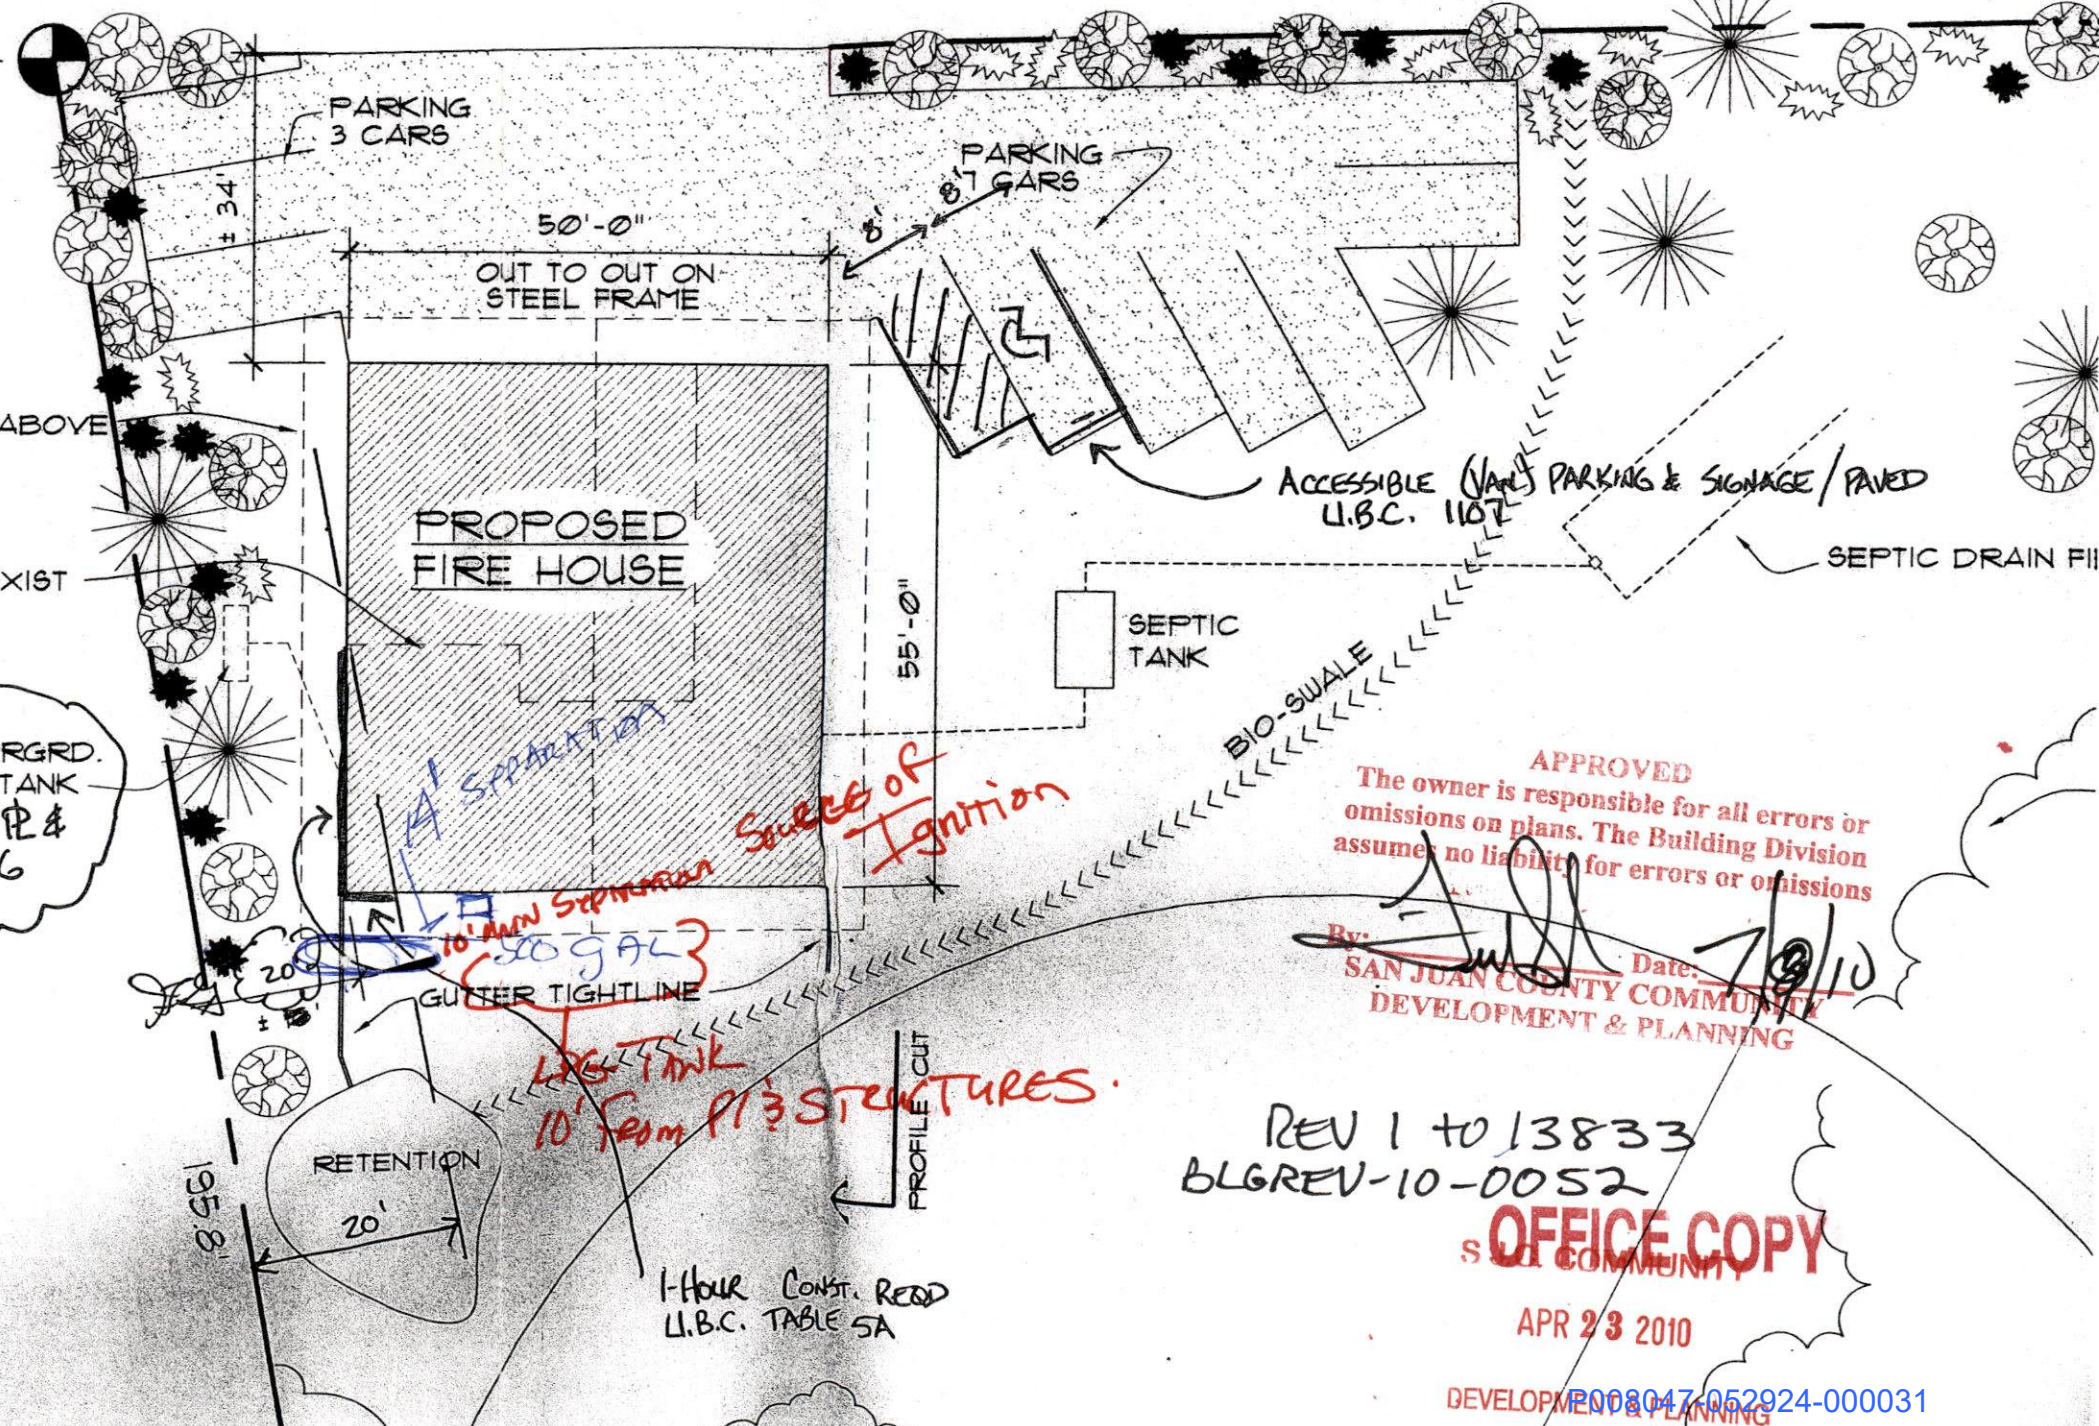 PARKING
3 CARS
± 34'
50'-0"
OUT TO OUT ON
STEEL FRAME
PARKING
7 CARS
8'
8'
ABOVE
PROPOSED
FIRE HOUSE
ACCESSIBLE (VAN) PARKING & SIGNAGE / PAVED
U.B.C. 1107
XIST
SEPTIC DRAIN FI
55'-0"
SEPTIC
TANK
BIO-SWALE
RGRD.
TANK
PL &
6
14' SEPARATION
SOURCE OF
Ignition
10' MIN SEPARATION
500 gAL
20'
GUTTER TIGHTLINE
LPG TANK
10' From Pl & STRUCTURES.
PROFILE CUT
RETENTION
20'
195.8'
1-HOUR CONST. REQD
U.B.C. TABLE 5A
APPROVED
The owner is responsible for all errors or
omissions on plans. The Building Division
assumes no liability for errors or omissions
By:
Date: 7/8/10
SAN JUAN COUNTY COMMUNITY
DEVELOPMENT & PLANNING
REV 1 to 13833
BLGREV-10-0052
OFFICE COPY
S.J.C. COMMUNITY
APR 23 2010
DEVELOPMENT & PLANNING
P008047-052924-000031